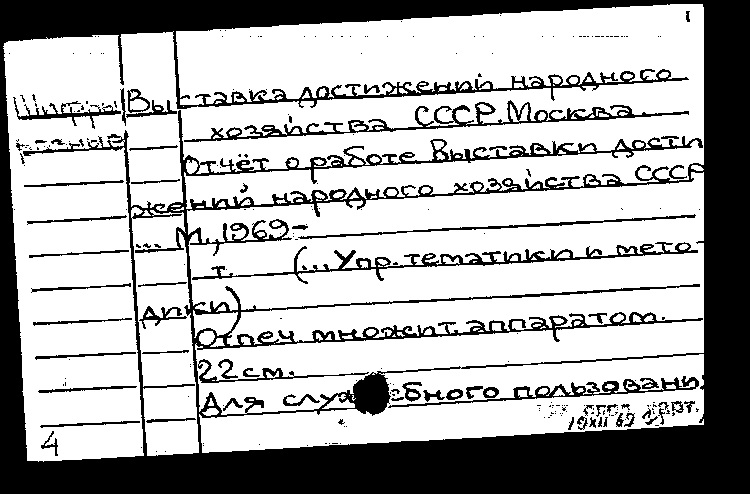 1
Шифры Выставка достижений народного
разные хозяйства СССР. Москва.
Отчёт о работе Выставки дости
жений народного хозяйства СССР
... М., 1969-
т. (... Упр. тематики и мето-
дики).
Отпеч. множит. аппаратом.
22 см.
Для служебного пользовани
карт.
19XII 69
4